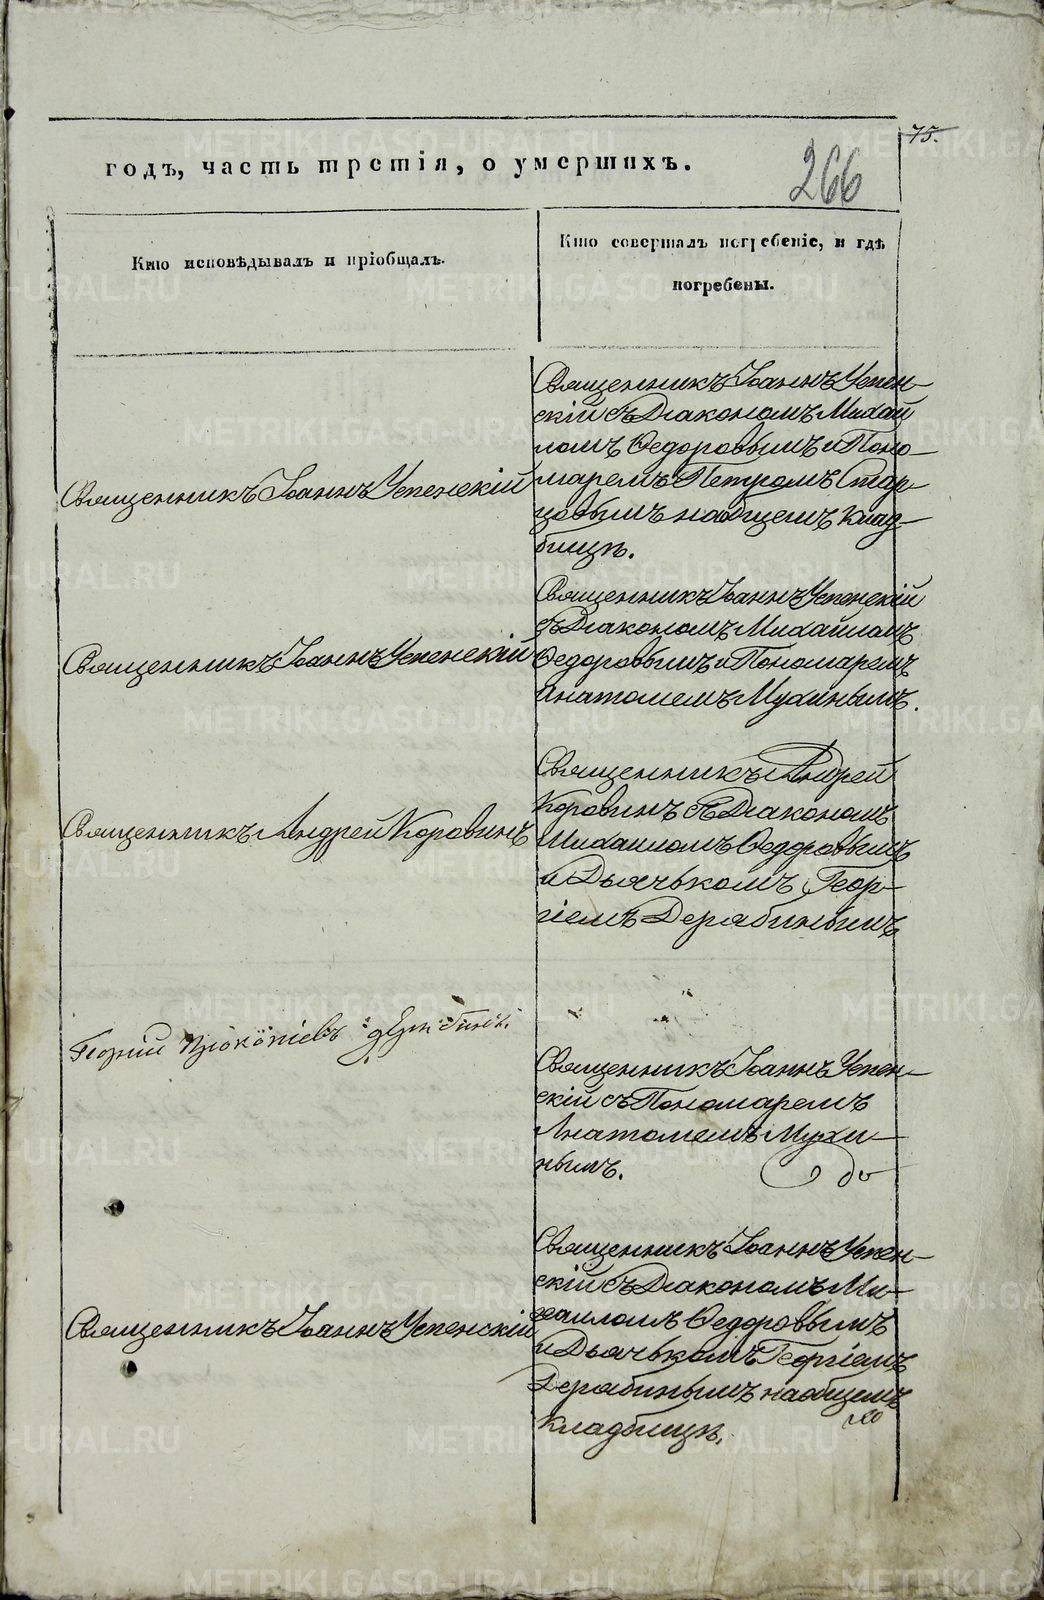 75.
годъ, часть третія, о умершихъ.
266
Кто исповѣдывалъ и пріобщалъ.
Кто совершалъ погребеніе, и гдѣ
погребены.
Священникъ Іоаннъ Успенскій
Священникъ Іоаннъ Успен-
скій съ Діакономъ Михаи
ломъ Ѳедоровымъ и Поно-
маремъ Петромъ Стар-
цовымъ на общемъ клад-
бищѣ.
Священникъ Іоаннъ Успенскій
Священникъ Іоаннъ Успенскій
съ Діакономъ Михаиломъ
Ѳедоровымъ и Пономаремъ
Анатолiемъ Мухинымъ.
Священникъ Андрей Коровинъ
Священникъ Андрей
Коровинъ съ Діакономъ
Михаиломъ Ѳедоровымъ
и Дьячькомъ Геор-
гіемъ Дерябинымъ
Георгій Прокопіевъ
Священникъ Іоаннъ Успен-
скій съ Пономаремъ
Анатолемъ Мухи-
нымъ.
Священникъ Іоаннъ Успенскій
Священникъ Іоаннъ Успен-
скій съ Діакономъ Ми-
хаиломъ Ѳедоровымъ
и Дьячькомъ Георгіемъ
Дерябинымъ на общемъ
кладбищѣ.
METRIKI.GASO-URAL.RU